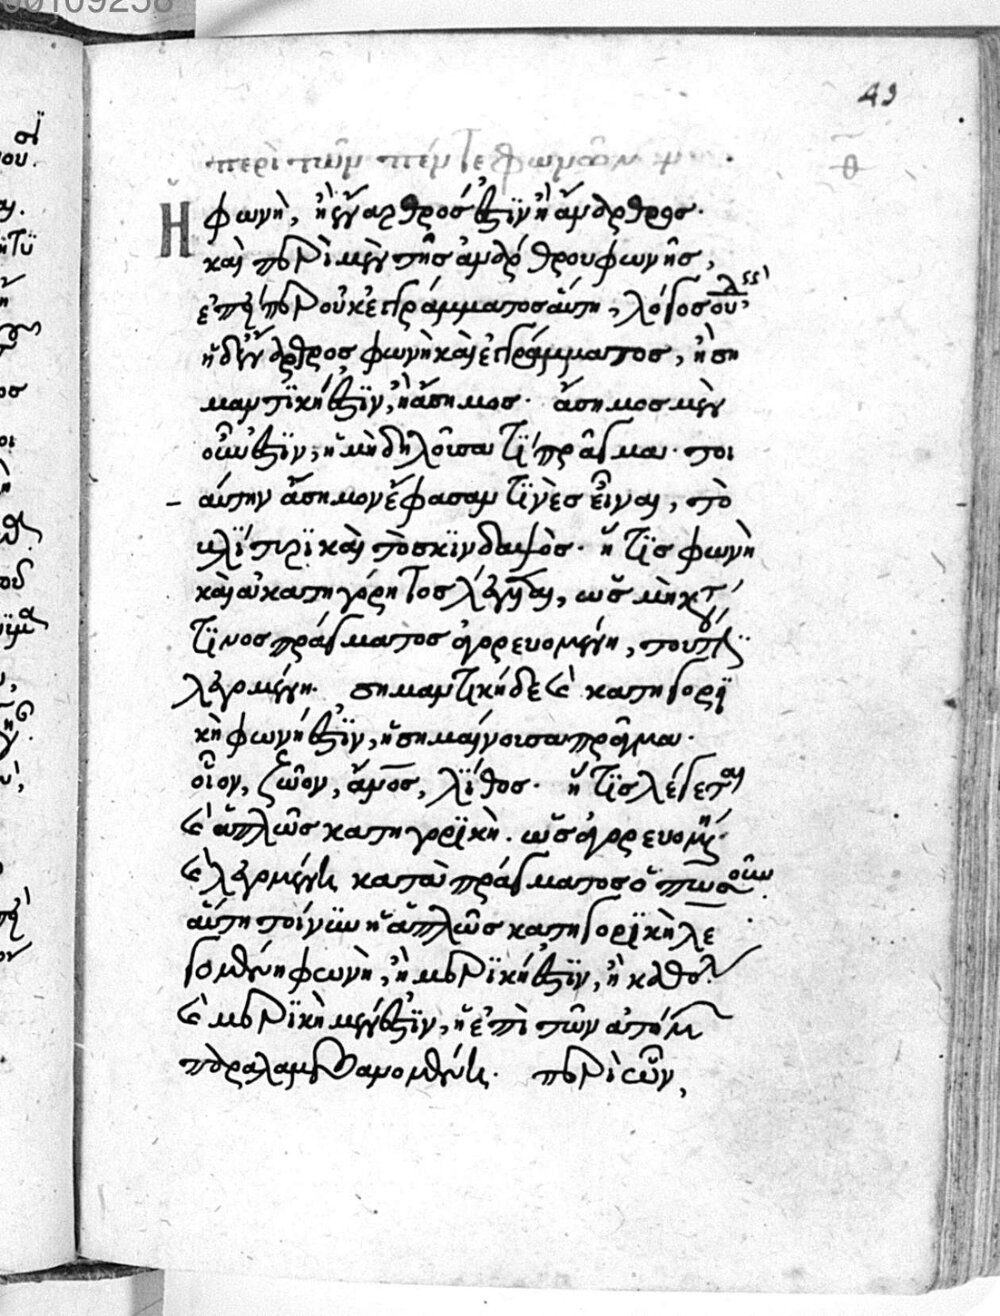 00109258
43
περὶ τῶν πέντε φωνῶν
θ
Ἡ φωνὴ, ἢ ἔναρθρός ἐστιν ἢ ἄναρθρος.
καὶ περὶ μὲν τῆς ἀνάρθρου φωνῆς,
ἐπεὶ περ οὐκ ἐγγράμματος αὕτη, λόγος οὐ
ἡ δὲ ἔναρθρος φωνὴ καὶ ἐγγράμματος, ἢ ση
μαντϊκή ἐστϊν, ἢ ἄσημος. ἄσημος μὲν
οὖν ἐστϊν, ἡ μὴ δηλοῦσα τῒ πρᾶγμα. τοι
αύτην ἄσημον ἔφασαν τϊνὲς εἶναι, τὸ
βλΐτυρϊ καὶ τὸ σκϊνδαψὸς. ἥ τϊς φωνὴ
καὶ ἀκατηγόρητος λέγεται, ὡς μὴ κτ
τϊνος πράγματος ἀγορευομένη,
λεγομένη. σημαντικὴ δὲ καὶ κατηγορϊ
κὴ φωνή ἐστϊν, ἡ σημαίνουσα πρᾶγμα.
οἷον, ζῶον, ἄνος, λΐθος. ἥ τϊς λέγεται
καὶ ἁπλῶς κατηγορϊκὴ. ὡς ἀγορευομένη
καὶ λεγομένη κατὰ πράγματος ὁπωσοῦν
αὕτη τοίνυν ἡ ἁπλῶς κατηγορϊκὴ λε
γομένη φωνὴ, ἢ μερϊκή ἐστϊν, ἢ καθολ
καὶ μερϊκὴ μέν ἐστϊν, ἡ ἐπὶ τῶν ἀτόμ
παραλαμβανομένη. περὶ ὧν,